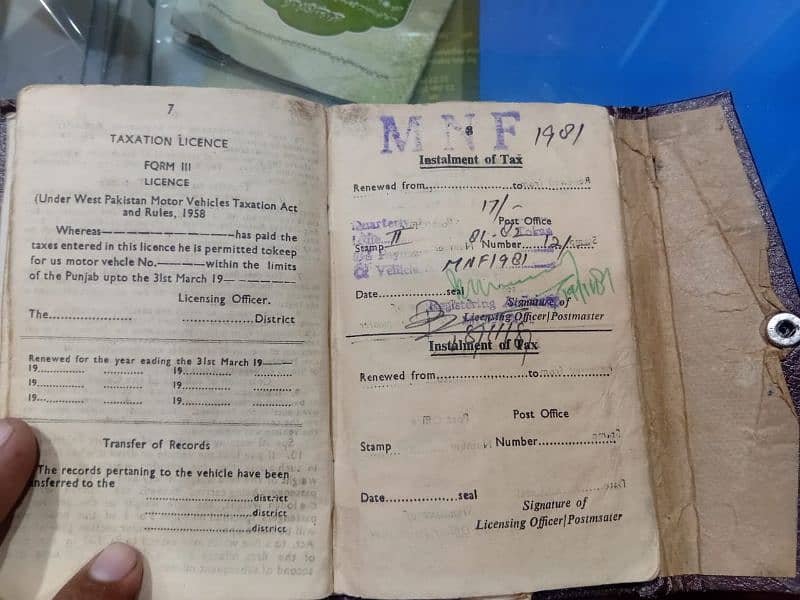 7
TAXATION LICENCE
FORM III
LICENCE
(Under West Pakistan Motor Vehicles Taxation Act
and Rules, 1958
Whereas————————————has paid the
taxes entered in this licence he is permitted tokeep
for us motor vehcle No.————within the limits
of the Punjab upto the 31st March 19—————
Licensing Officer.
The....................................District
Renewed for the year eading the 31st March 19———
19............ .......... 19............ ..........
19............ .......... 19............ ..........
19............ .......... 19............ ..........
Transfer of Records
The records pertaining to the vehicle have been
nsferred to the
..............................district
..............................district
..............................district
MNF 1981
8
Instalment of Tax
Renewed from......................to..................
17/-
Quarterly Post Office
Stamp II 81-82 Number 12/-
of Vehicle MNF1981
Date.................seal
Registering Signature of
Licensing Officer/Postmaster
Instalment of Tax
Renewed from......................to..................
Post Office
Stamp Number...................
Date.................seal
Signature of
Licensing Officer/Postmsater